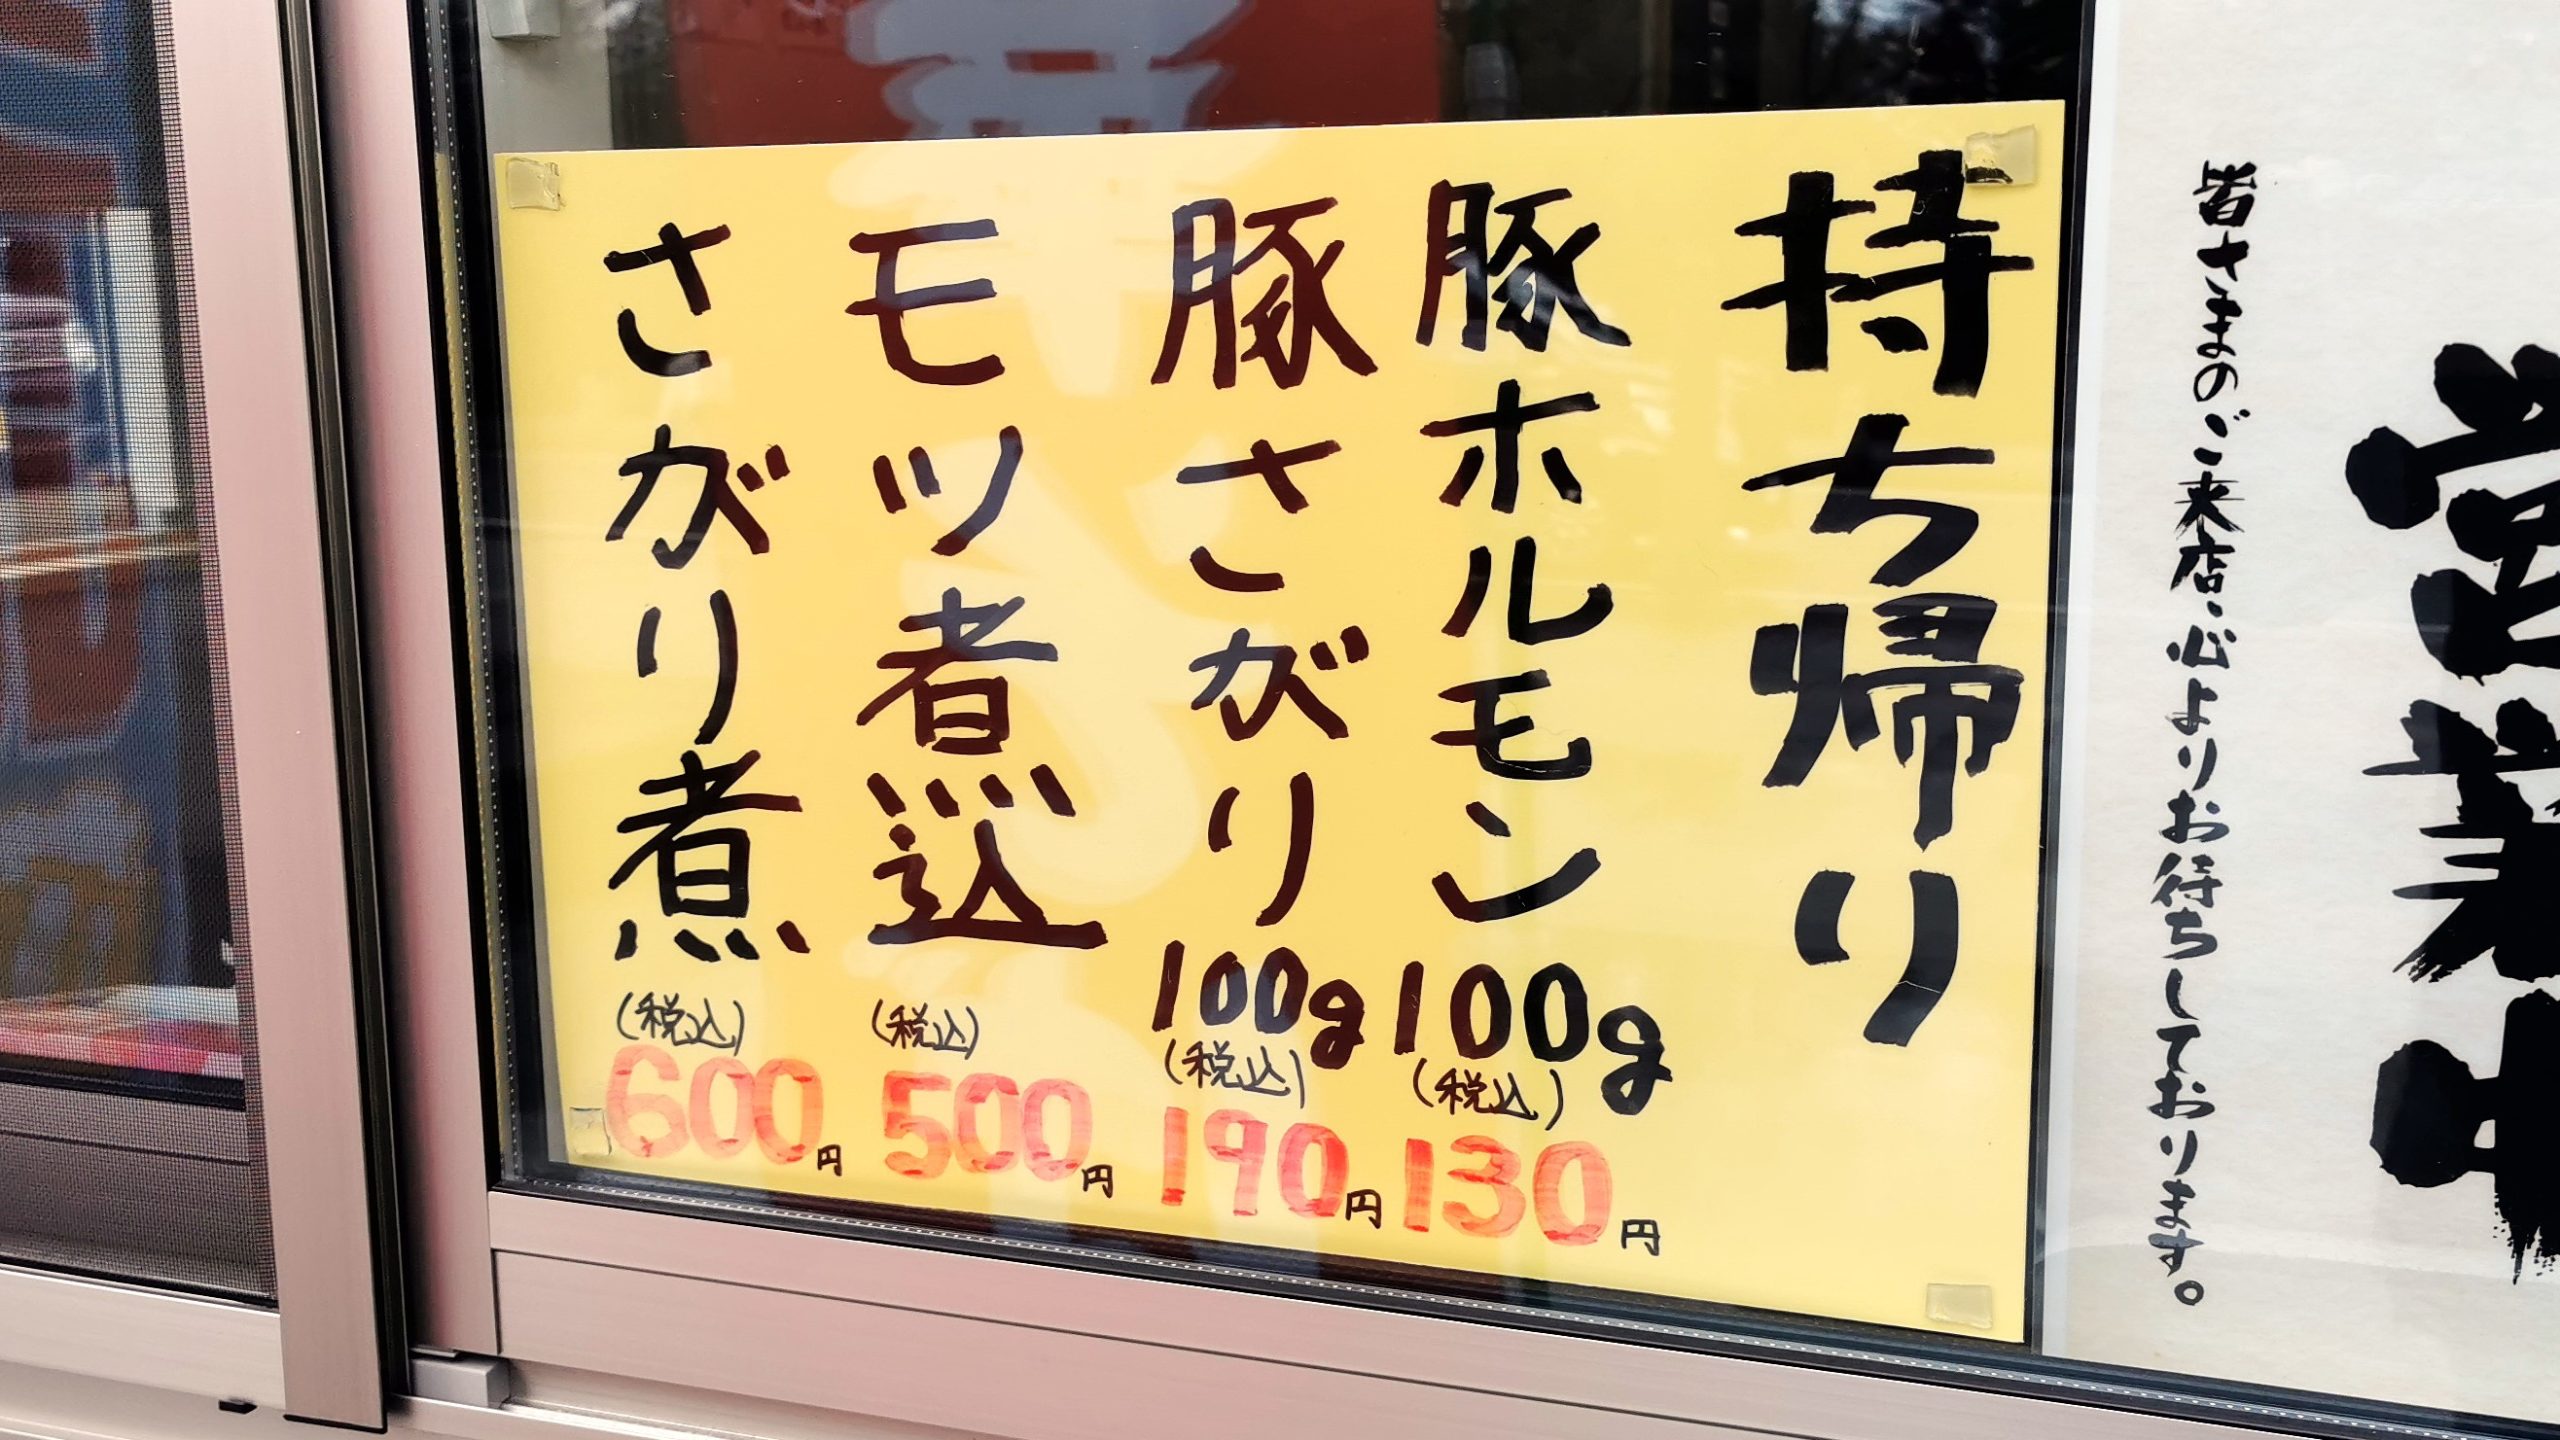 営業中
皆さまのご来店、心よりお待ちしております。
持ち帰り
豚ホルモン 100g (税込) 130円
豚さがり 100g (税込) 190円
モツ煮込 (税込) 500円
さがり煮 (税込) 600円